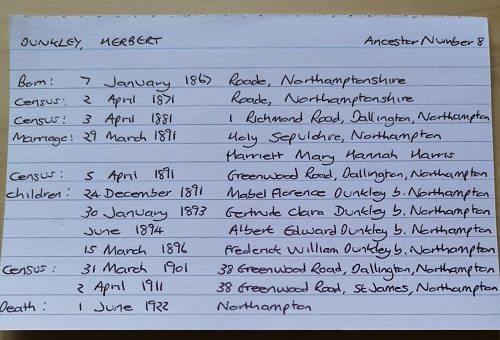 DUNKLEY, HERBERT Ancestor Number 8
Born: 7 January 1867 Roade, Northamptonshire
Census: 2 April 1871 Roade, Northamptonshire
Census: 3 April 1881 1 Richmond Road, Dallington, Northampton
Marriage: 29 March 1891 Holy Sepulchre, Northampton
Harriett Mary Hannah Harris
Census: 5 April 1891 Greenwood Road, Dallington, Northampton
Children: 24 December 1891 Mabel Florence Dunkley b. Northampton
30 January 1893 Gertrude Clara Dunkley b. Northampton
June 1894 Albert Edward Dunkley b. Northampton
15 March 1896 Frederick William Dunkley b. Northampton
Census: 31 March 1901 38 Greenwood Road, Dallington, Northampton
2 April 1911 38 Greenwood Road, St James, Northampton
Death: 1 June 1922 Northampton